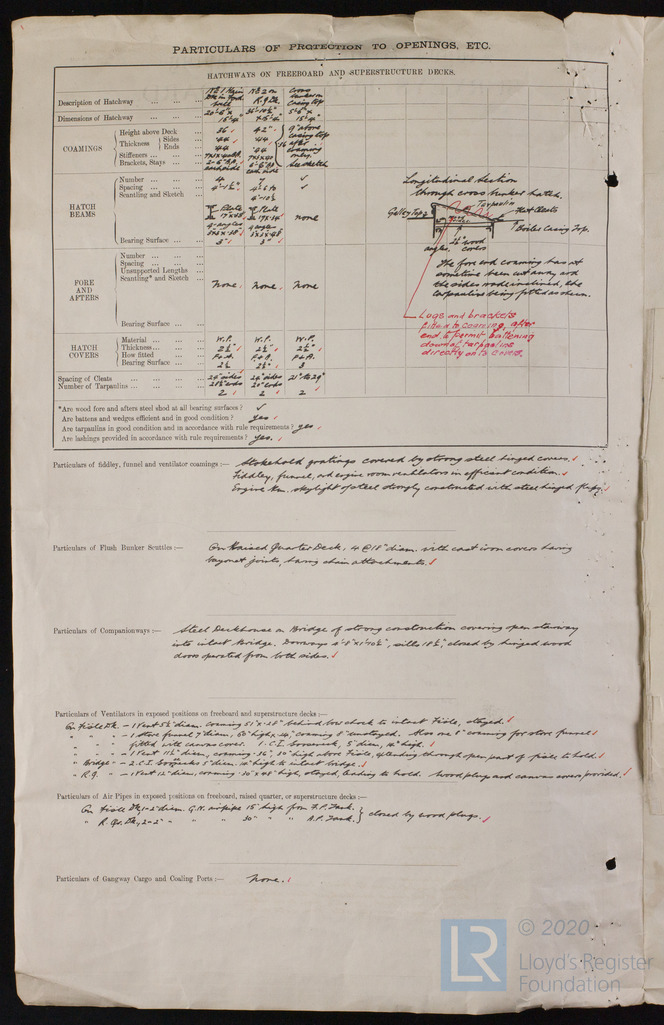 PARTICULARS OF PROTECTION TO OPENINGS, ETC.
HATCHWAYS ON FREEBOARD AND SUPERSTRUCTURE DECKS.
Description of Hatchway
Dimensions of Hatchway
COAMINGS
Height above Deck 36 42"
Thickness Sides .44 .44
Ends .44 .44
Stiffeners
Brackets, Stays
HATCH BEAMS
Number 4 7 ✓
Spacing 4'-1½" ✓
Scantling and Sketch
none
Bearing Surface 3" 3"
FORE AND AFTERS
Number
Spacing
Unsupported Lengths
Scantling* and Sketch
None. None. None
Bearing Surface
HATCH COVERS
Material W.P. W.P. W.P.
Thickness 2½" 2½" 2½"
How fitted F+A. F+A. F+A.
Bearing Surface 3
Spacing of Cleats 24" sides
Number of Tarpaulins 2 2 2
Longitudinal Section
through cross bunker hatch.
Tarpaulin
Galley Top
Flat Cleats
Boiler Casing Top.
angles. 2½" wood covers
The fore end coaming has at
sometime been cut away and
the sides made inclined, the
tarpaulins being fitted as shewn.
Lugs and brackets
fitted to coaming, after
end to permit battening
down of tarpaulins
directly on to covers.
*Are wood fore and afters steel shod at all bearing surfaces? ✓
Are battens and wedges efficient and in good condition? yes.
Are tarpaulins in good condition and in accordance with rule requirements? yes.
Are lashings provided in accordance with rule requirements? yes.
Particulars of fiddley, funnel and ventilator coamings :— Stokehold gratings covered by strong steel hinged covers.
Fiddley, funnel, and engine room ventilators in efficient condition.
Engine Rm. skylight of steel strongly constructed with steel hinged flaps.
Particulars of Flush Bunker Scuttles :— On Raised Quarter Deck, 4 @ 18" diam. with cast iron covers having
bayonet joints, having chain attachments.
Particulars of Companionways :— Steel Deckhouse on Bridge of strong construction covering open stairway
into intact Bridge. Doorways sills 18½", closed by hinged wood
doors operated from both sides.
Particulars of Ventilators in exposed positions on freeboard and superstructure decks :—
On Fiddle Dk. — 1 Vent 5½" diam. coaming behind bow chock to intact Fiddle, stayed.
" " — 1 stove funnel 7" diam, 60" high, coaming 8" unstayed. Also one 8" coaming for stove funnel
fitted with canvas cover. 1 C.I. Gooseneck, 5" diam, 16" high.
" " — 1 Vent 11½" diam, coaming 30" high above Fiddle, & leading through open part of fiddle to hold.
" Bridge — 2 C.I. Goosenecks 5" diam. high to intact bridge.
" R.Q. — 1 Vent 12" diam, coaming high, stayed, leading to hold. Wood plugs and canvas covers provided.
Particulars of Air Pipes in exposed positions on freeboard, raised quarter, or superstructure decks :—
On Fiddle Dk, 1 - 2" diam. G.N. air pipe 15" high from F.P. Tank.
" R. Qr. Dk, 2 - 2" " " 30" " " A.P. Tank. } closed by wood plugs.
Particulars of Gangway Cargo and Coaling Ports :— None.
LR © 2020
Lloyd's Register
Foundation